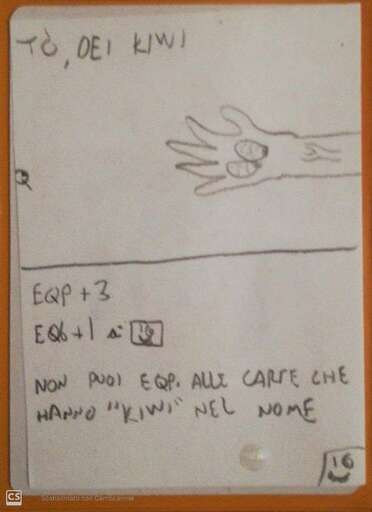 TÒ, DEI KIWI
EQP +3
EQ6 +1 a:
NON PUOI EQP. ALLE CARTE CHE
HANNO "KIWI" NEL NOME
16
CS Scansionato con CamScanner